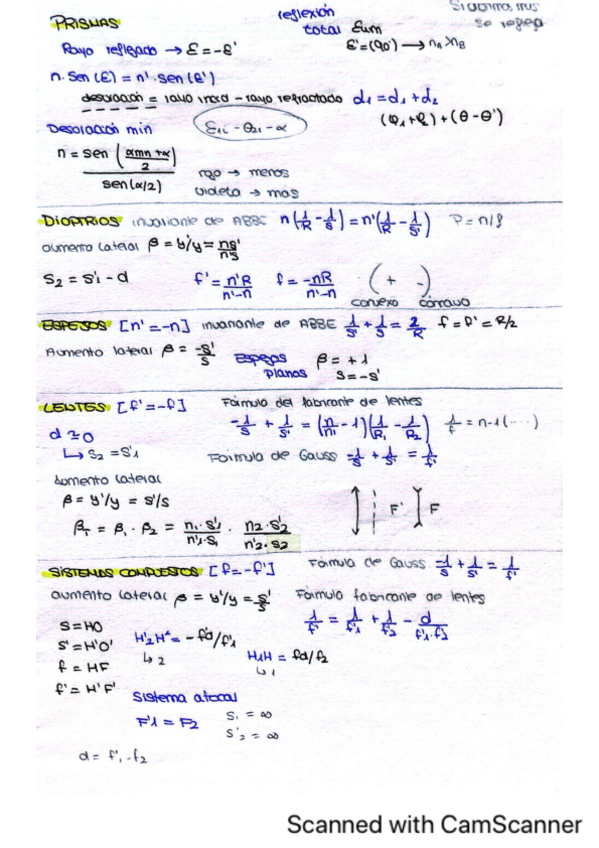 PRISMAS
reflexión total
εlim
ε'=(90°) → nA > nB
se refleja
Rayo reflejado → ε = -ε'
n. sen (ε) = n'. sen (ε')
desviación = rayo incid - rayo refractado d1 = d1 + d2
Desviación min
ε1i - θ2i - α
n = sen (αmn + α / 2) / sen (α/2)
rojo → menos
violeta → más
DIOPTRIOS invariante de ABBE n(1/R - 1/s) = n'(1/R - 1/s')
aumento lateral β = y'/y = ns'/n's
S2 = S'1 - d
f' = n'R/n'-n
f = -nR/n'-n
( + - )
convexo cóncavo
ESPEJOS [n' = -n] invariante de ABBE 1/s' + 1/s = 2/R f = f' = R/2
Aumento lateral β = -s'/s
Espejos planos
β = +1
s = -s'
LENTES [f' = -f]
Fórmula del fabricante de lentes
d ≃ 0
↳ S2 = S'1
-1/s + 1/s' = (n/n1 - 1)(1/R1 - 1/R2)
1/f' = n-1 (...)
Fórmula de Gauss -1/s + 1/s' = 1/f'
Aumento lateral
β = y'/y = s'/s
βT = β1 . β2 = n1.s'1/n'1.s1 . n2.s'2/n'2.s2
F' F
SISTEMAS COMPUESTOS [f = -f'] Fórmula de Gauss -1/s + 1/s' = 1/f'
aumento lateral β = y'/y = s'/s
Fórmula fabricante de lentes
1/f' = 1/f'1 + 1/f'2 - d/f'1.f'2
S = HO
S' = H'O'
f = HF
f' = H'F'
H'2H' = -f'd/f'1
↳ 2
H1H = fd/f2
↳ 1
Sistema afocal
F'1 = F2
S1 = ∞
S'2 = ∞
d = f'1 - f2
Scanned with CamScanner